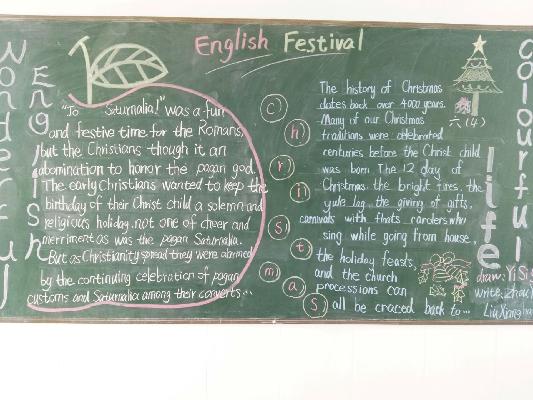 English Festival
Wonderful
English
"Jo Saturnalia!" was a fun
and festive time for the Romans,
but the Christians though it an
abomination to honor the pagan god.
The early Christians wanted to keep the
birthday of their Christ child a solemn and
religious holiday, not one of cheer and
merriment as was the pagan Saturnalia.
But as Christianity spread they were alarmed
by the continuing celebration of pagan
customs and Saturnalia among their converts...
christmas
The history of Christmas
dates back over 4000 years.
Many of our Christmas
traditions were celebrated
centuries before the Christ child
was born The 12 day of
Christmas. the bright fires, the
yule log the giving of gifts,
carnivals with thats. carolers who
sing while going from house,
the holiday feasts,
and the church
processions can
all be craced back to...
六(4)
Colourful
life
draw: Yi Si
write: Zhou
Liu Xiang